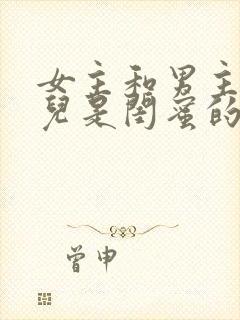 女主和男主
兒是閨蜜的
曾申